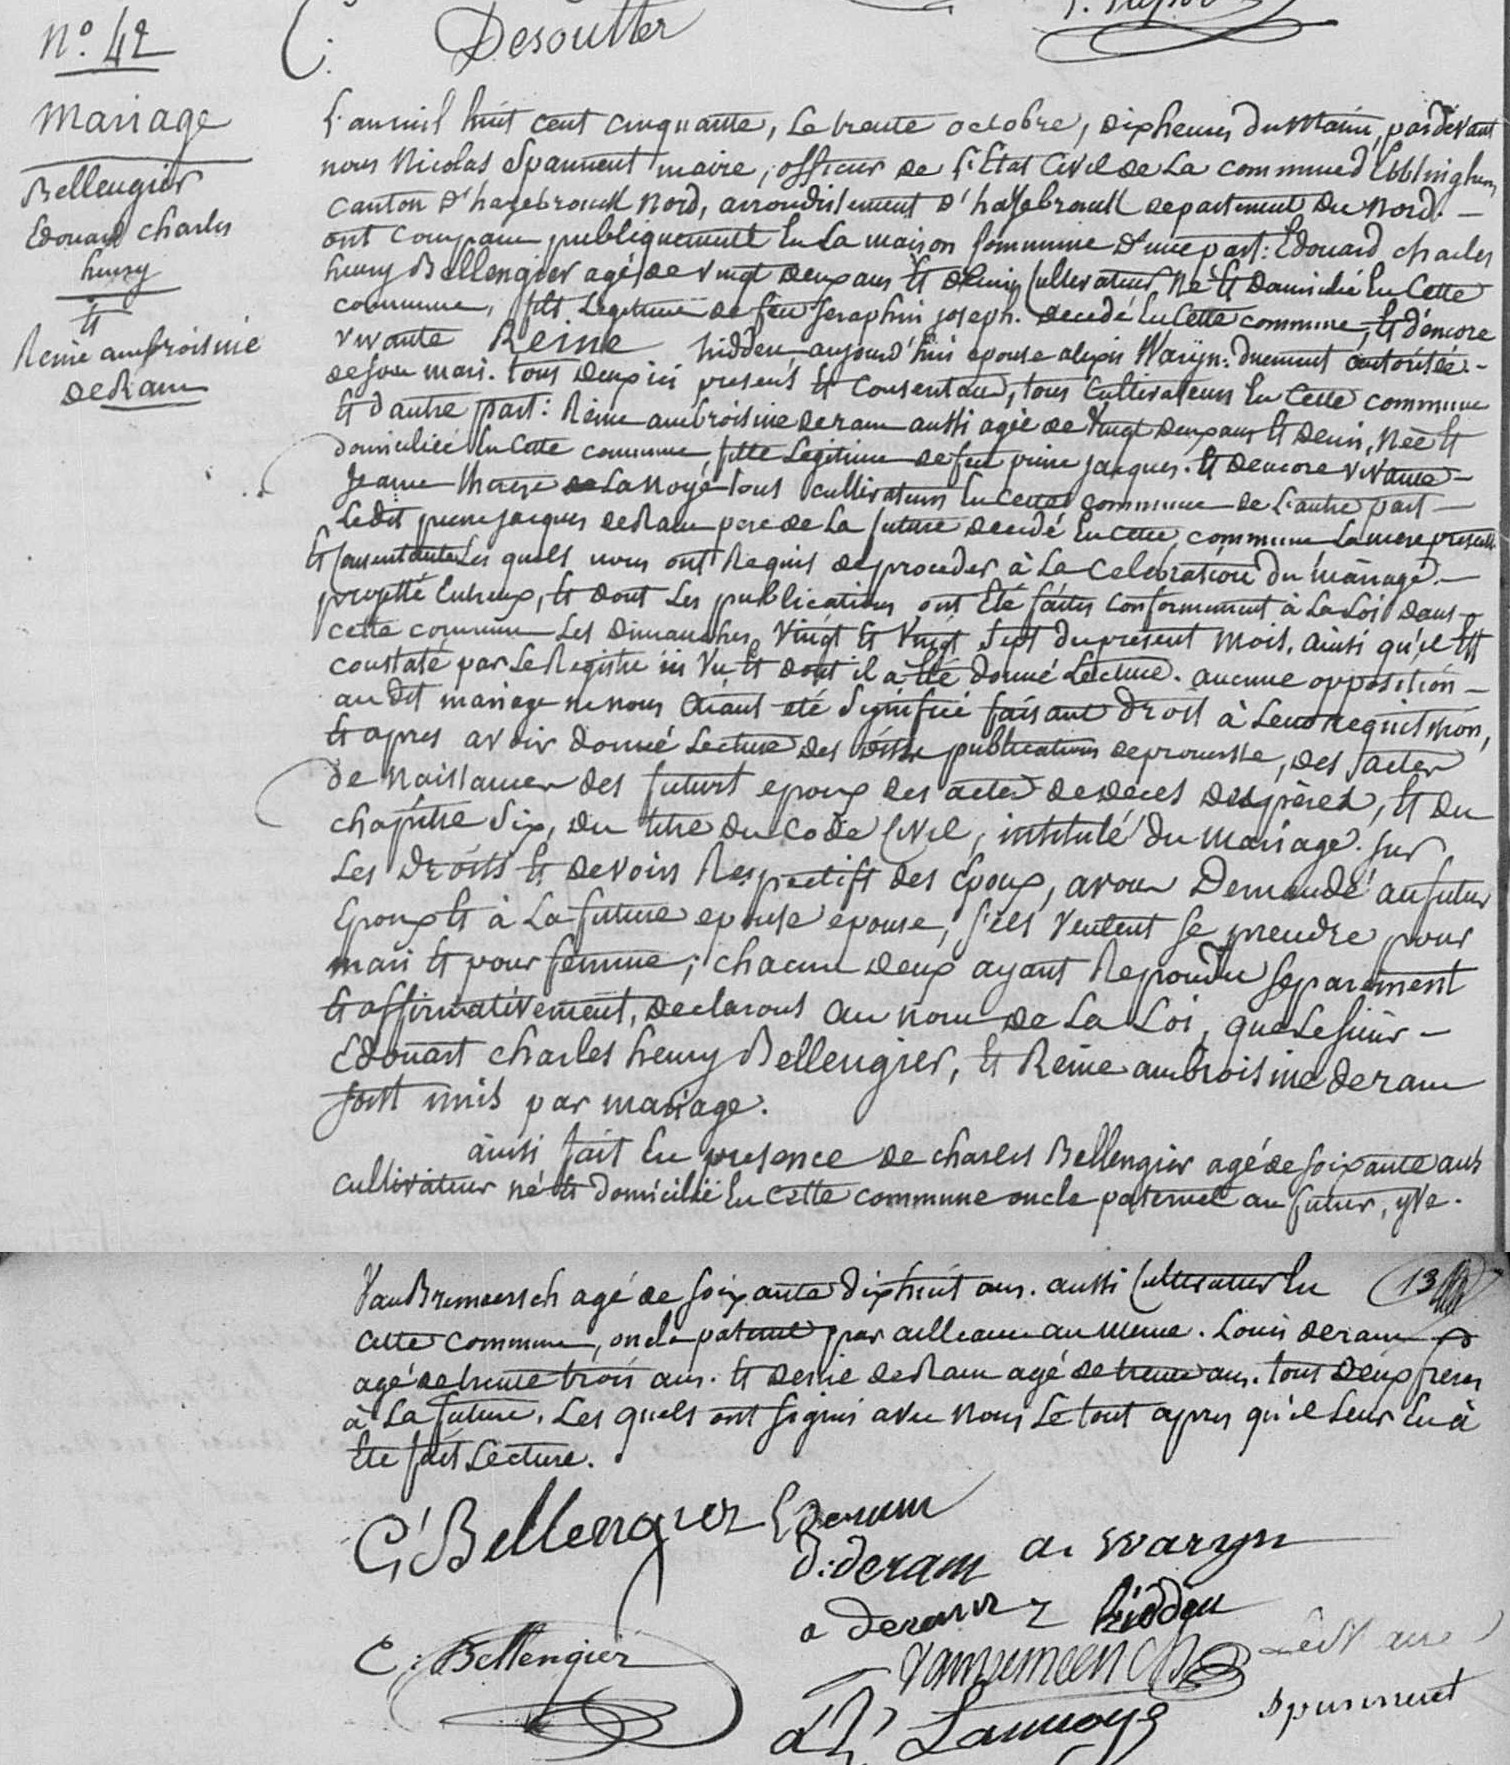 N.o 42
C. Desoutter
Mariage
Bellengier
Edouard Charles
henry
Et
Reine ambroisine
DeRam
L'an mil huit cent cinquante, Le trente octobre, dix heures du Matin, pardevant
nous Nicolas Spanneut maire, officier de L'Etat Civil de La commune d'Ebblinghem,
Canton d'hazebrouck Nord, arrondissement D'hazebrouck departement Du Nord. —
ont comparu publiquement En La maison Commune D'une part: Edouard charles
henry Bellengier agé de vingt deux ans Et Demi, Cultivateur, Né Et Domicilié En Cette
commune, fils Legitime de feu Seraphin joseph. Decedé En Cette commune, Et d'encore
vivante Reine hidden, aujourd'hui epouse alexis Waryn: duement autorisée. -
de son mari. tous Deux ici presents Et Consentans, tous Cultivateurs En Cette commune
Et D'autre part: Reine ambroisine deram aussi agée de Vingt Deux ans Et Demi, Née Et
domiciliée En Cette commune, fille Legitime de feu pierre jacques. Et D'encore vivante —
Jeanne therese De Lanoye tous cultivateurs En Cette commune — de L'autre part —
Ledit pierre jacques deRam pere de La future Decedé En Cette commune La mere presente
Et Consentante Les quels nous ont Requis de proceder à La Celebration du mariage —
projetté Entreux, Et dont Les publications ont Eté faites conformement à La Loi Dans
cette commune Les Dimanches Vingt Et Vingt Sept du present mois, ainsi qu'il Est
constaté par Le Registre ici Vu, Et dont il a Eté donné Lecture. aucune opposition —
au dit mariage ne nous aiant eté Signifiée faisant Droit à Leur requisition,
Et apres avoir donné Lecture Des dites publications de promesse, Des actes
de Naissances des futurs epoux des actes de deces Des peres, Et Du
chapitre Six, Du titre Du Code Civil, intitulé Du Mariage. Sur
Les Droits Et Devoirs Respectifs des Epoux, avons Demandé au futur
Epoux Et à La future epouse epouse, S'ils Veulent Se prendre pour
mari Et pour femme; chacun Deux ayant Repondu Separement
Et affirmativement, Declarons au nom De La Loi, que Le sieur —
Edouart charles henry Bellengier, Et Reine ambroisine deram
Sont unis par mariage.
ainsi fait En presence De charles Bellengier agé de Soixante ans
cultivateur né Et Domicilié En Cette commune oncle paternel au futur, yve.
VanBremeersch agé de Soixante Dix huit ans. aussi Cultivateur En
13
cette commune, oncle paternel par alleance au meme. Louis deram
agé de trente trois ans. Et Desiré deRam agé de trente ans. tous Deux freres
à La future. Les quels ont Signés avec Nous Le tout apres qu'il Leur En à
Ete fait Lecture.
C. Bellengier L Deram
D: deram a. Waryn
a deram r hidden
E. Bellengier Vanbremeersch Le Maire
Spanneut
Lannoye